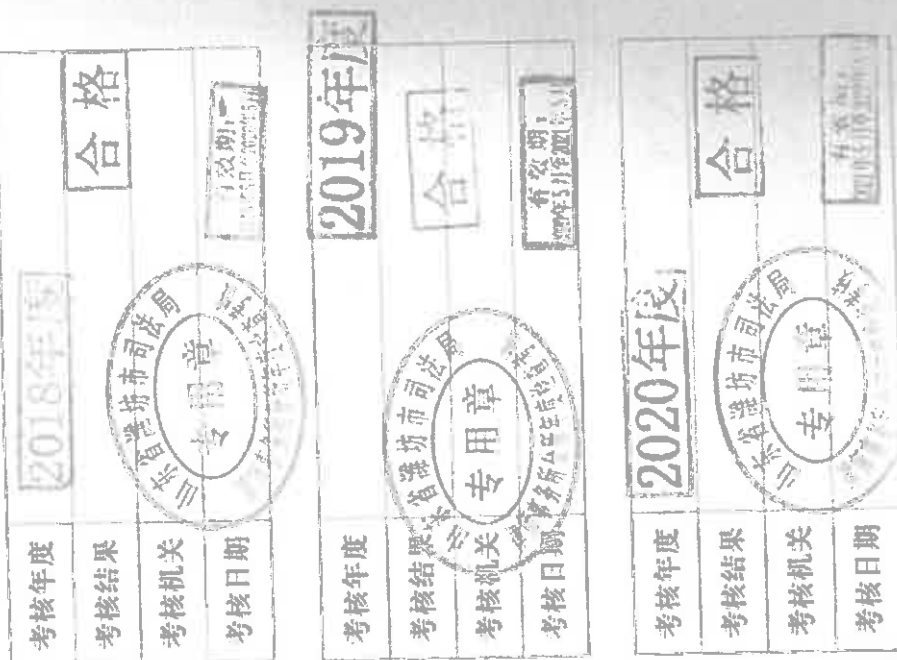 考核年度
2018年度
考核结果
合格
考核机关
山东省潍坊市司法局
专用章
考核日期
有效期:
考核年度
2019年度
考核结果
合格
考核机关
山东省潍坊市司法局
专用章
考核日期
有效期:
考核年度
2020年度
考核结果
合格
考核机关
山东省潍坊市司法局
专用章
考核日期